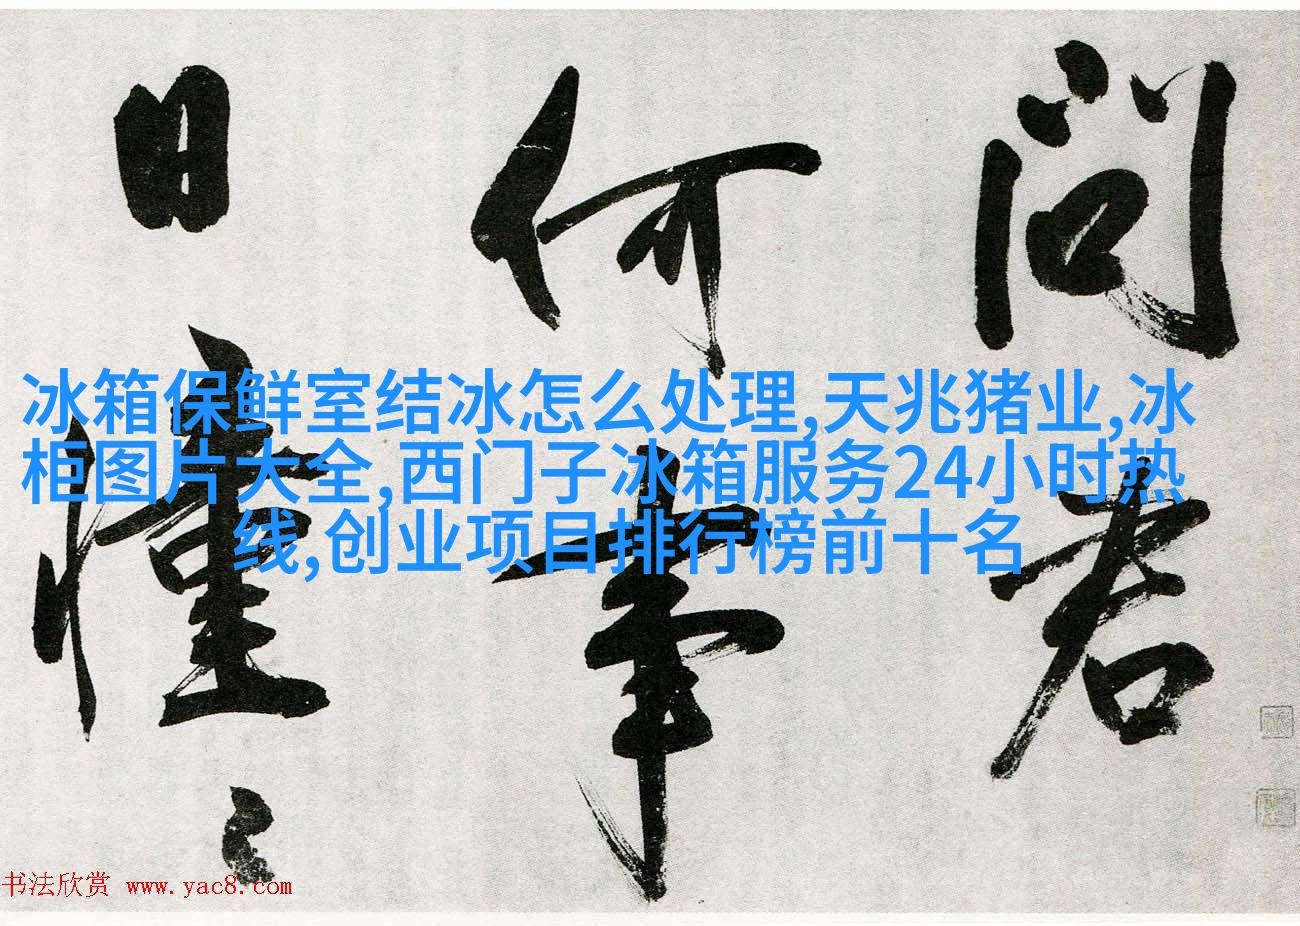 问君
何事
日憧〻
冰箱保鲜室结冰怎么处理,天兆猪业,冰
柜图片大全,西门子冰箱服务24小时热
线,创业项目排行榜前十名
书法欣赏 www.yac8.com